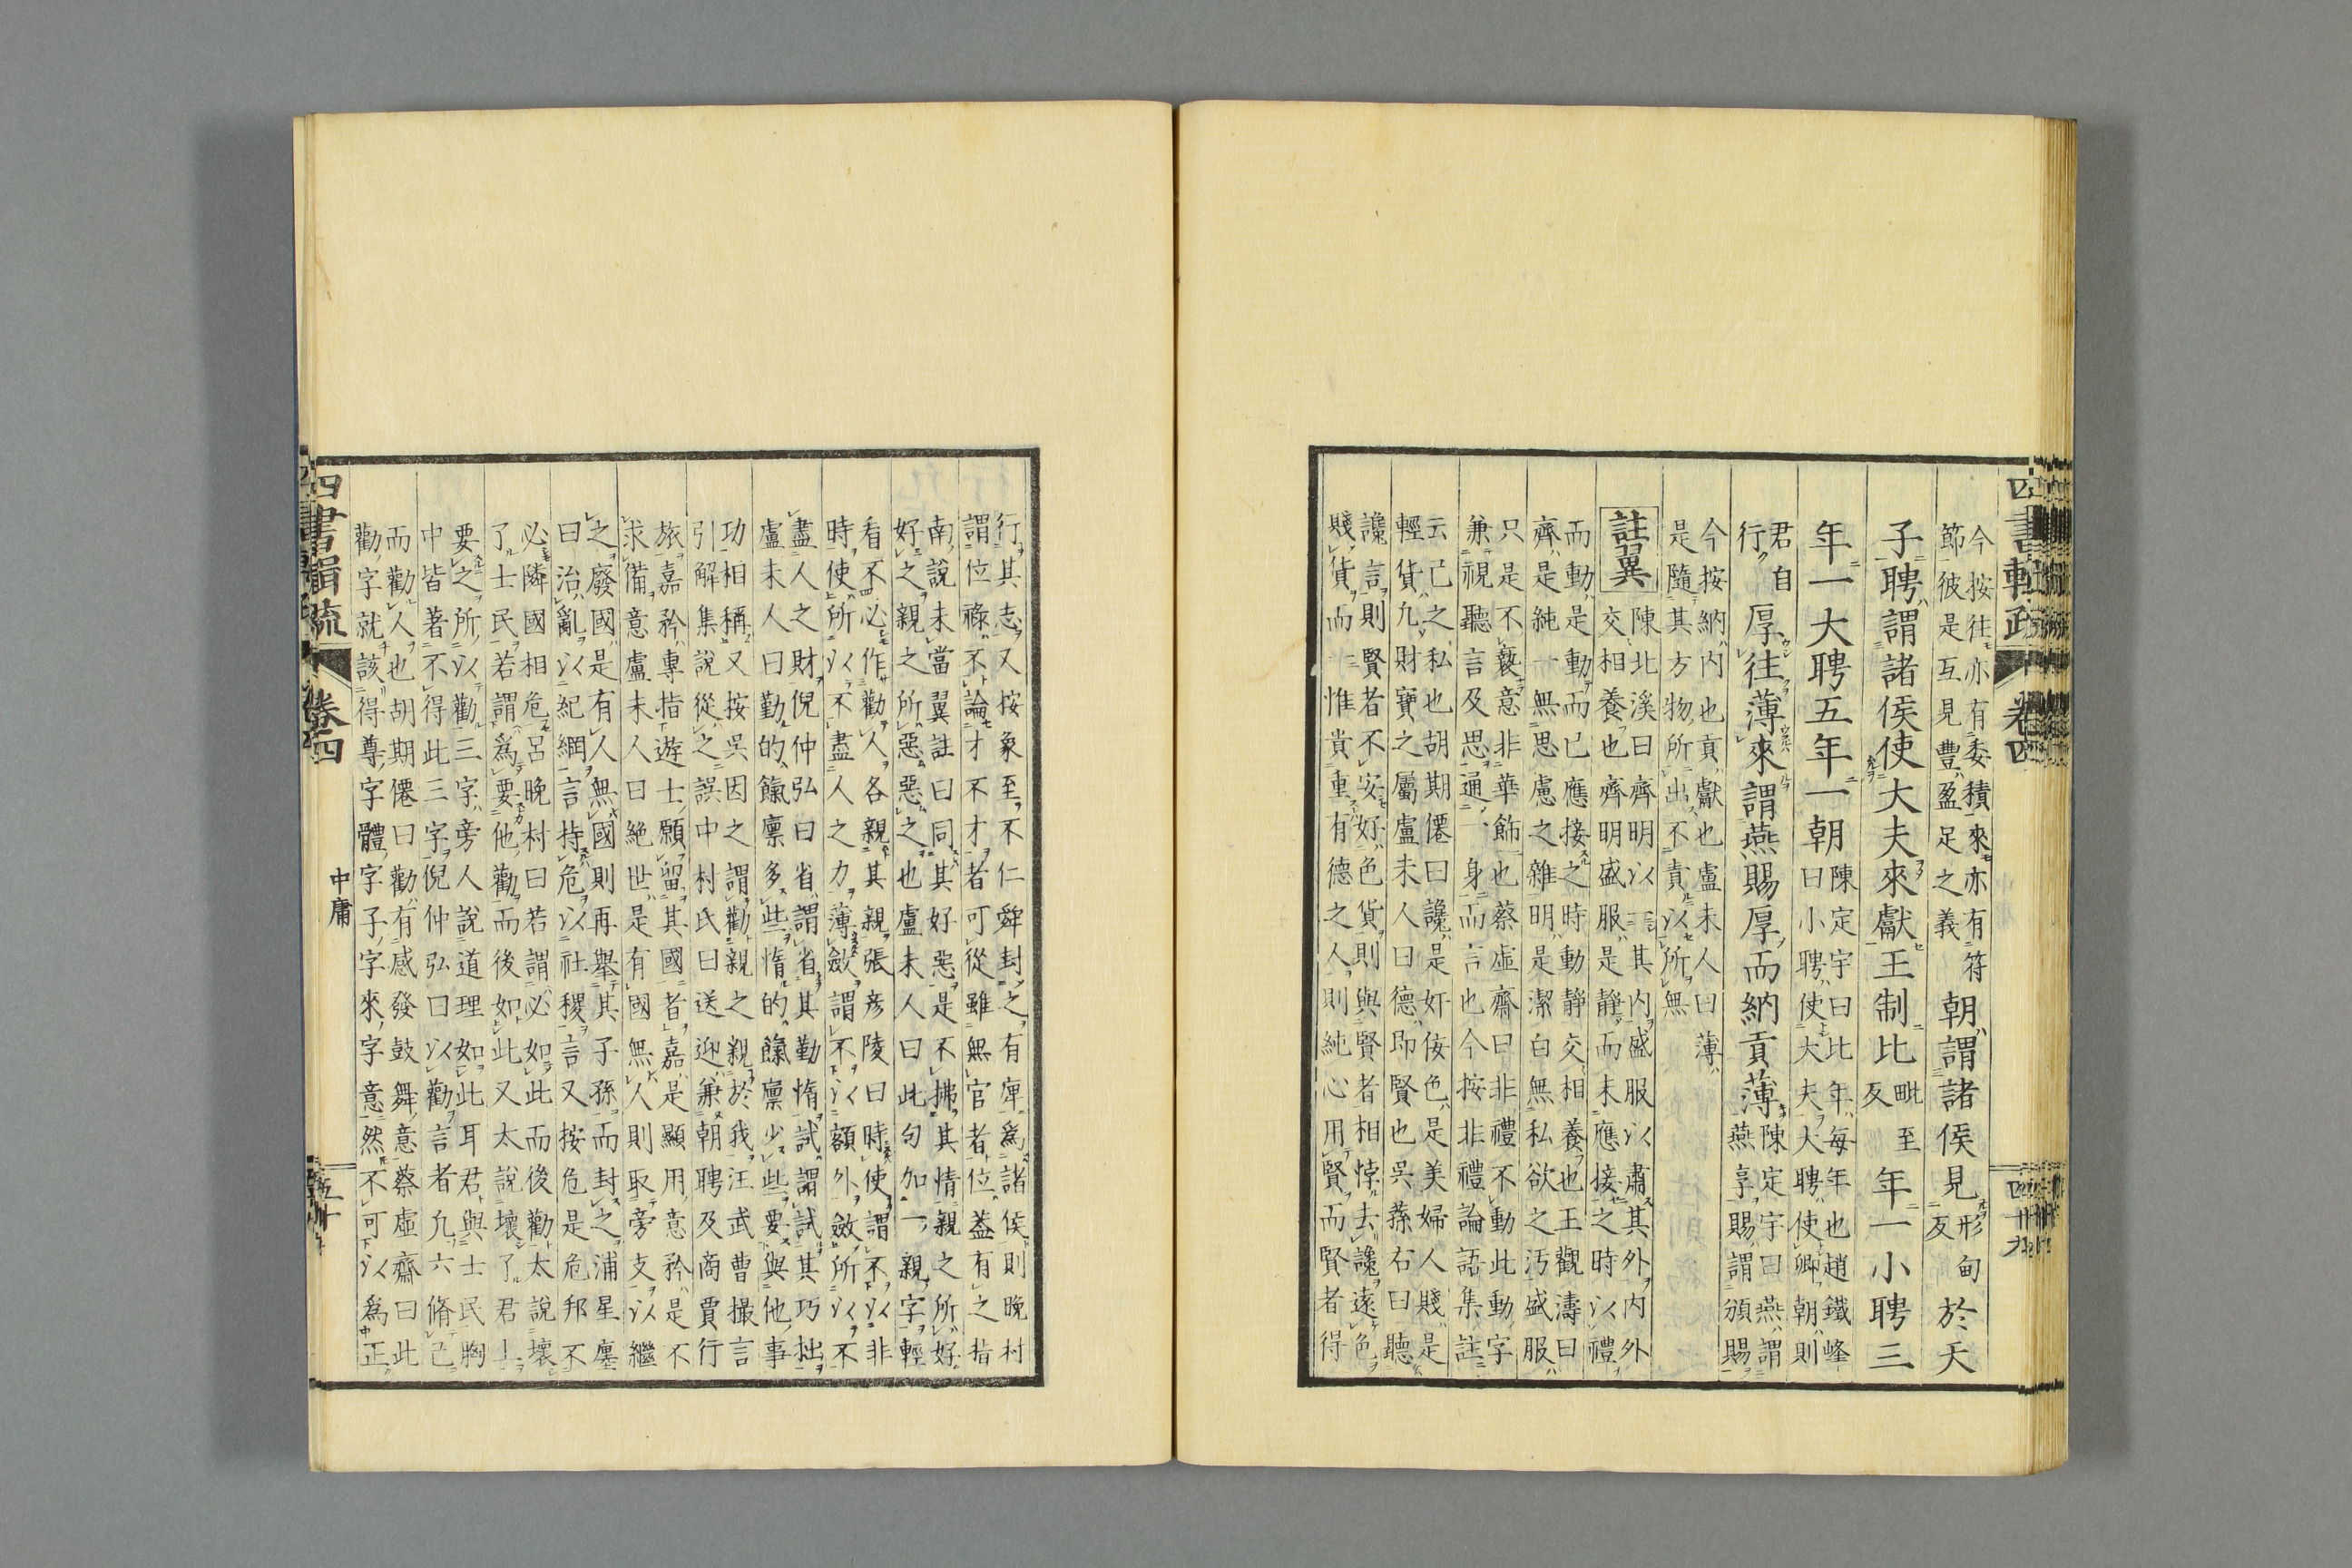 今按往亦有委積來亦有符
節彼是互見豊盈足之義
朝謂諸侯見形甸反於天
子聘謂諸侯使大夫來獻王制比毗至反年一小聘三
年一大聘五年一朝陳定宇曰比年每年也趙鐵峰
曰小聘使大夫大聘使卿朝則
君自
行
厚往薄來謂燕賜厚而納貢薄陳定宇曰燕謂
燕享賜謂頒賜
今按納內也貢獻也盧未人曰薄
是隨其方物所出不責以所無
註翼
陳北溪曰齊明以其內盛服以肅其外內外
交相養也齊明盛服是靜而未應接之時以禮
而動是動而已應接之時動靜交相養也王觀濤曰
齊是純一無思慮之雜明是潔白無私欲之汚盛服
只是不褻意非華飾也蔡虛齋曰非禮不動此動字
兼視聽言及思通一身而言也今按非禮論語集註
云己之私也胡期僊曰讒是奸佞色是美婦人賤是
輕貨凢財寶之屬盧未人曰德即賢也吳蓀右曰聽
讒言則賢者不安好色貨則與賢者相悖去讒遠色
賤貨而一惟貴重有德之人則純心用賢而賢者得
四書輯疏 卷四
行其志又按象至不仁舜封之有庳為諸侯則晚村
謂位祿不論才不才者可從雖無官者位蓋有之指
南說未當翼註曰同其好惡是不拂其情親之所好
好之親之所惡惡之也盧未人曰此句加一親字輕
看不必作勸人各親其親張彥陵曰時使謂不以非
時使所以不盡人之力薄斂謂不以額外斂所以不
盡人之財倪仲弘曰省謂省其勤惰試謂試其巧拙
盧未人曰勤的餼稟多些惰的餼稟少些要與他事
功相稱又按吳因之謂勸親之親於我汪武曹撮言
引解集說從之誤中村氏曰送迎兼朝聘及商賈行
旅嘉矜專指遊士願留其國者嘉是顯用意矜是不
求備意盧未人曰絕世是有國無人則取旁支以繼
之廢國是有人無國則再舉其子孫而封之浦星廛
曰治亂以紀綱言持危以社稷言又按危是危邦不
必隣國相危呂晚村曰若謂必如此而後勸太說壞
了士民若謂為要他勸而後如此又太說壞了君上
要之所以勸三字旁人說道理如此耳君與士民胸
中皆著不得此三字倪仲弘曰以勸言者凢六脩己
而勸人也胡期僊曰勸有感發鼓舞意蔡虛齋曰此
勸字就該得尊字體字子字來字意然不可以為正
四書輯疏 卷四 中庸 五十